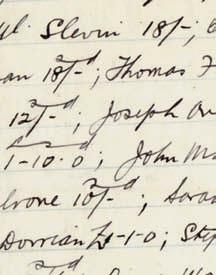 Slevin 18/-;
an 18/-d; Thomas F
12/-d; Joseph
1-10-0; John Ma
rone 10/-d; Sara
Dorrian £1-1-0; Step